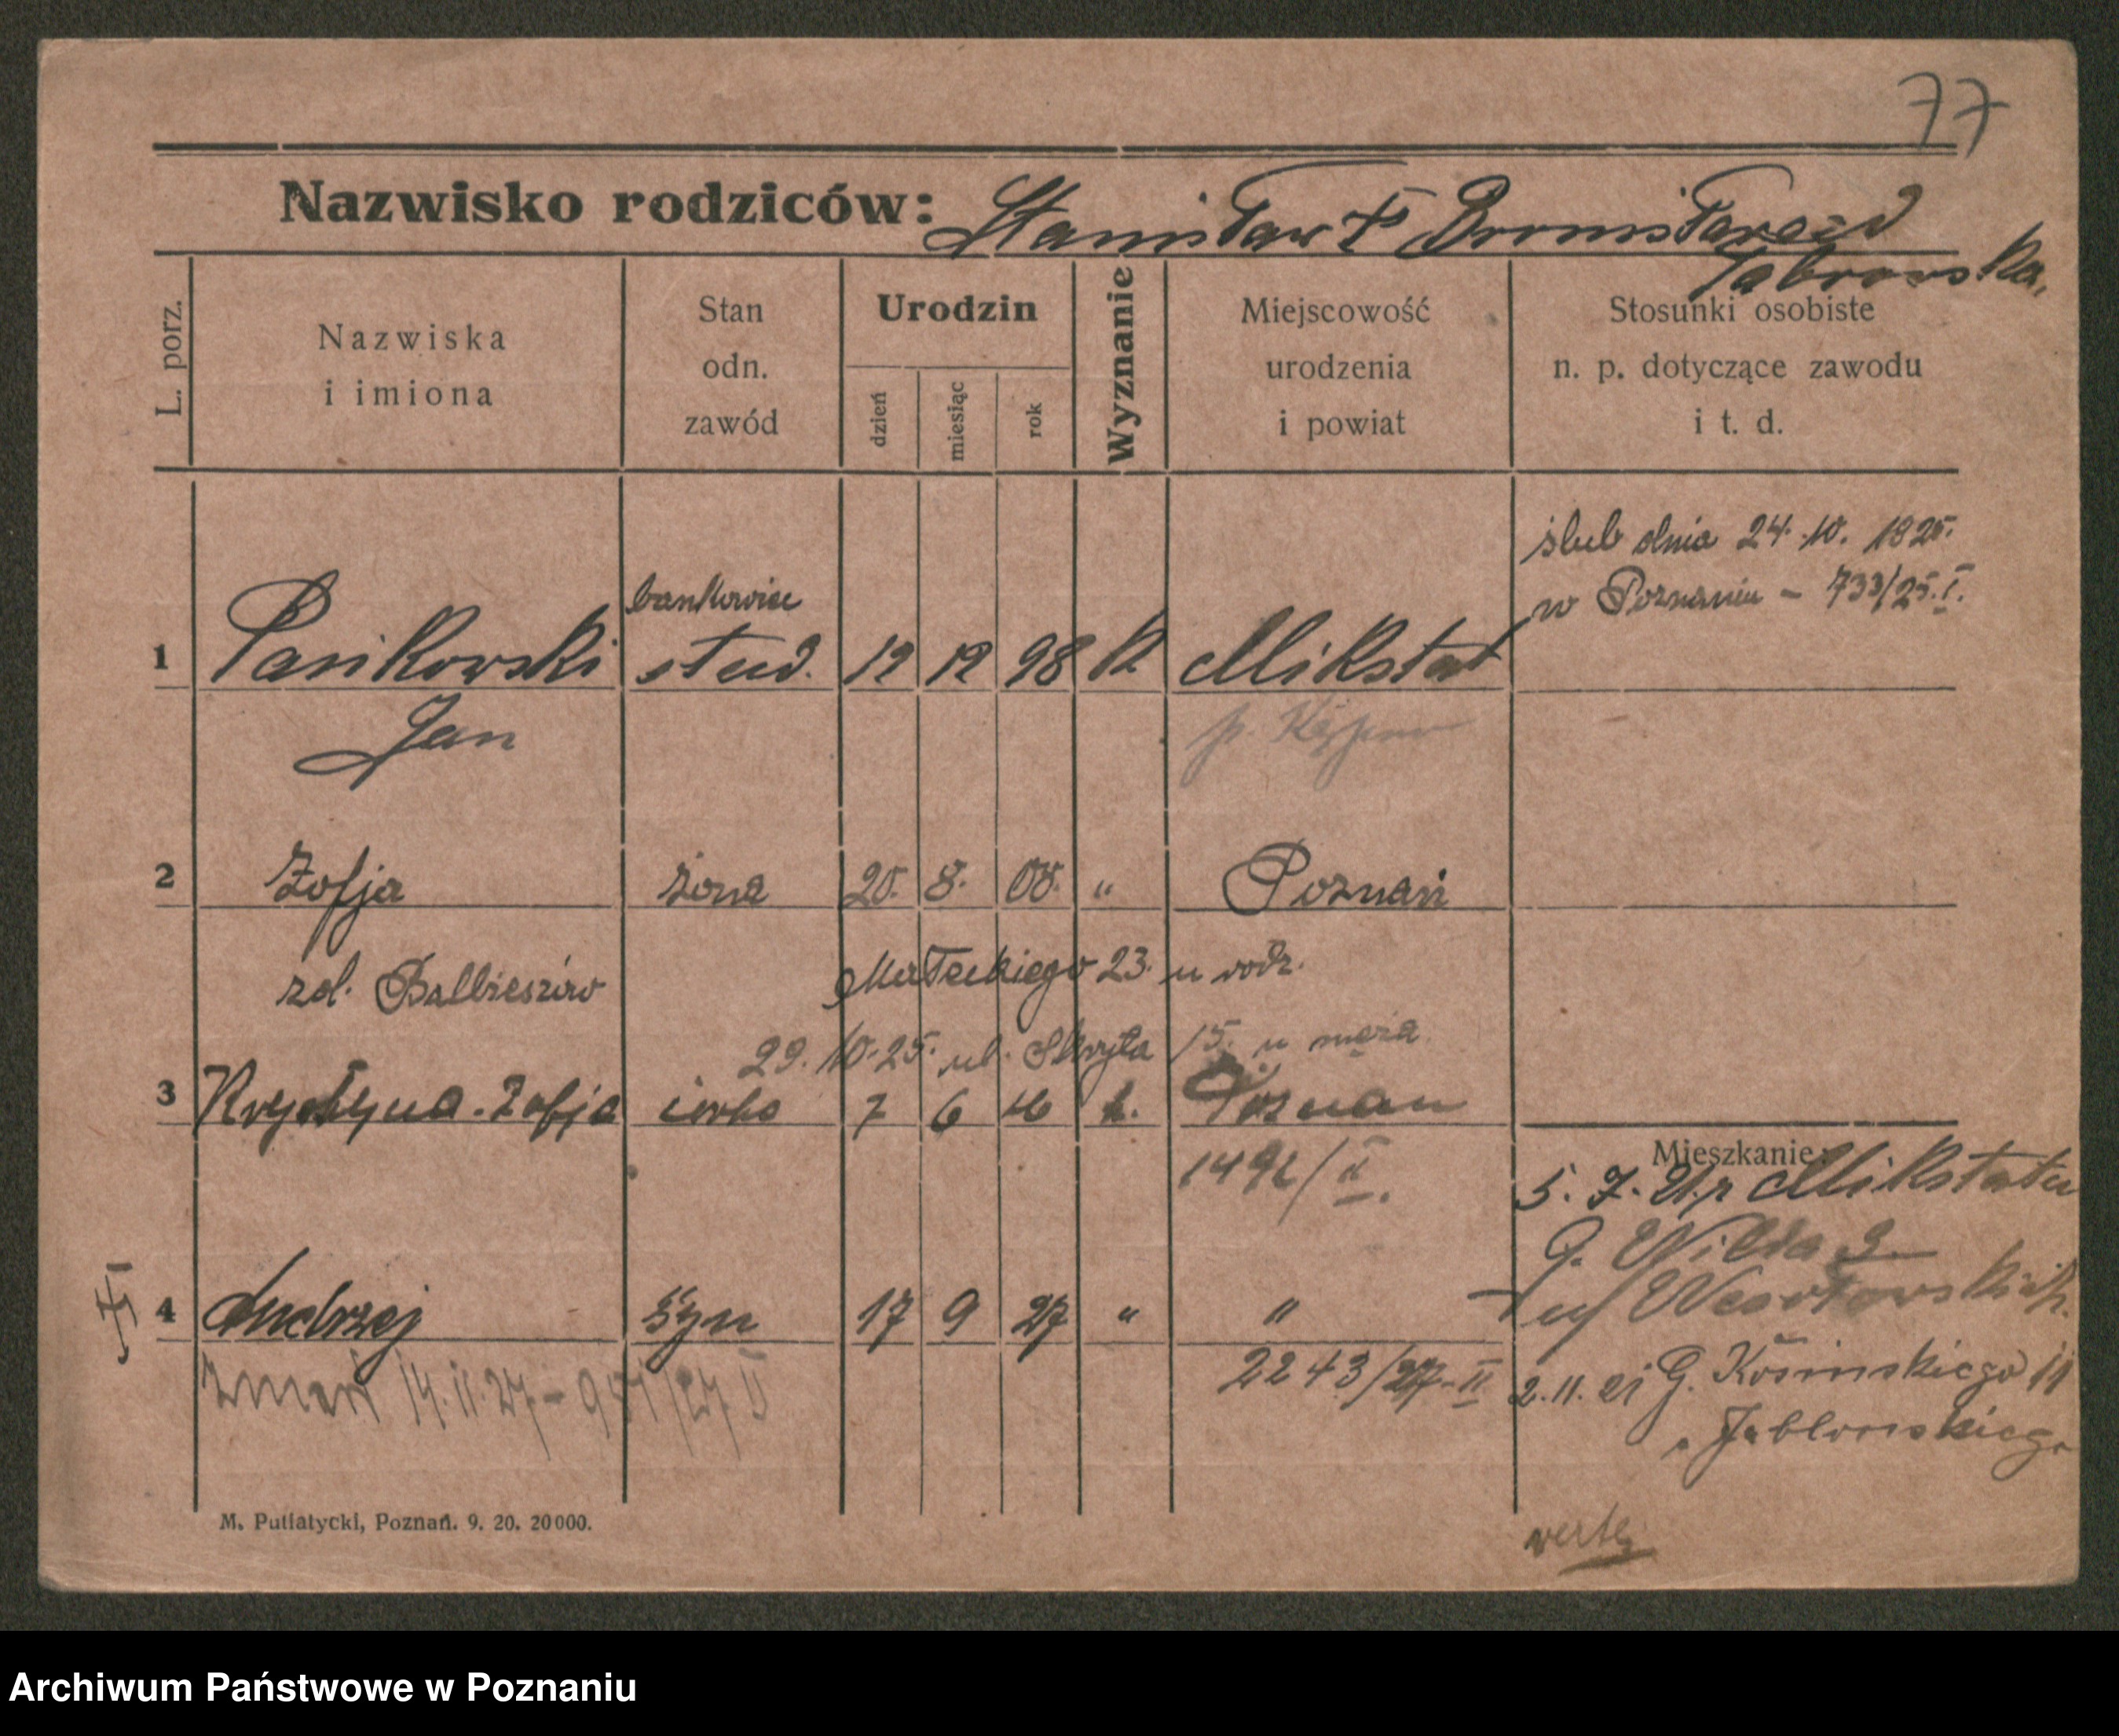 77
Nazwisko rodziców: Stanisław † Bronisława z d
L. porz.
Nazwiska
i imiona
Stan
odn.
zawód
Urodzin
dzień
miesiąc
rok
Wyznanie
Miejscowość
urodzenia
i powiat
Stosunki osobiste
n. p. dotyczące zawodu
i t. d.
ślub dnia 24. 10. 1925.
w Poznaniu - 733/25. I.
bankowiec
1 Pasikowski stud. 19 12 98 k Mikstat
Jan
2 Zofja żona 20. 8. 08. " Poznań
zd.
Małeckiego 23. u rodz.
29. 10. 25. ul. Skryta 15. u męża
3 Krystyna-Zofja córka 7 6 26 k. Poznań
1492/II.
Mieszkanie:
5. 7. 21. z Mikstatu
G. Wilda
4 Andrzej syn 17 9 27 " "
2243/27-II
zmarł 14.11.27-
2.11.21 G. Kosinskiego 11
Jabłonskiego
verte
M. Putiatycki, Poznań. 9. 20. 20000.
Archiwum Państwowe w Poznaniu